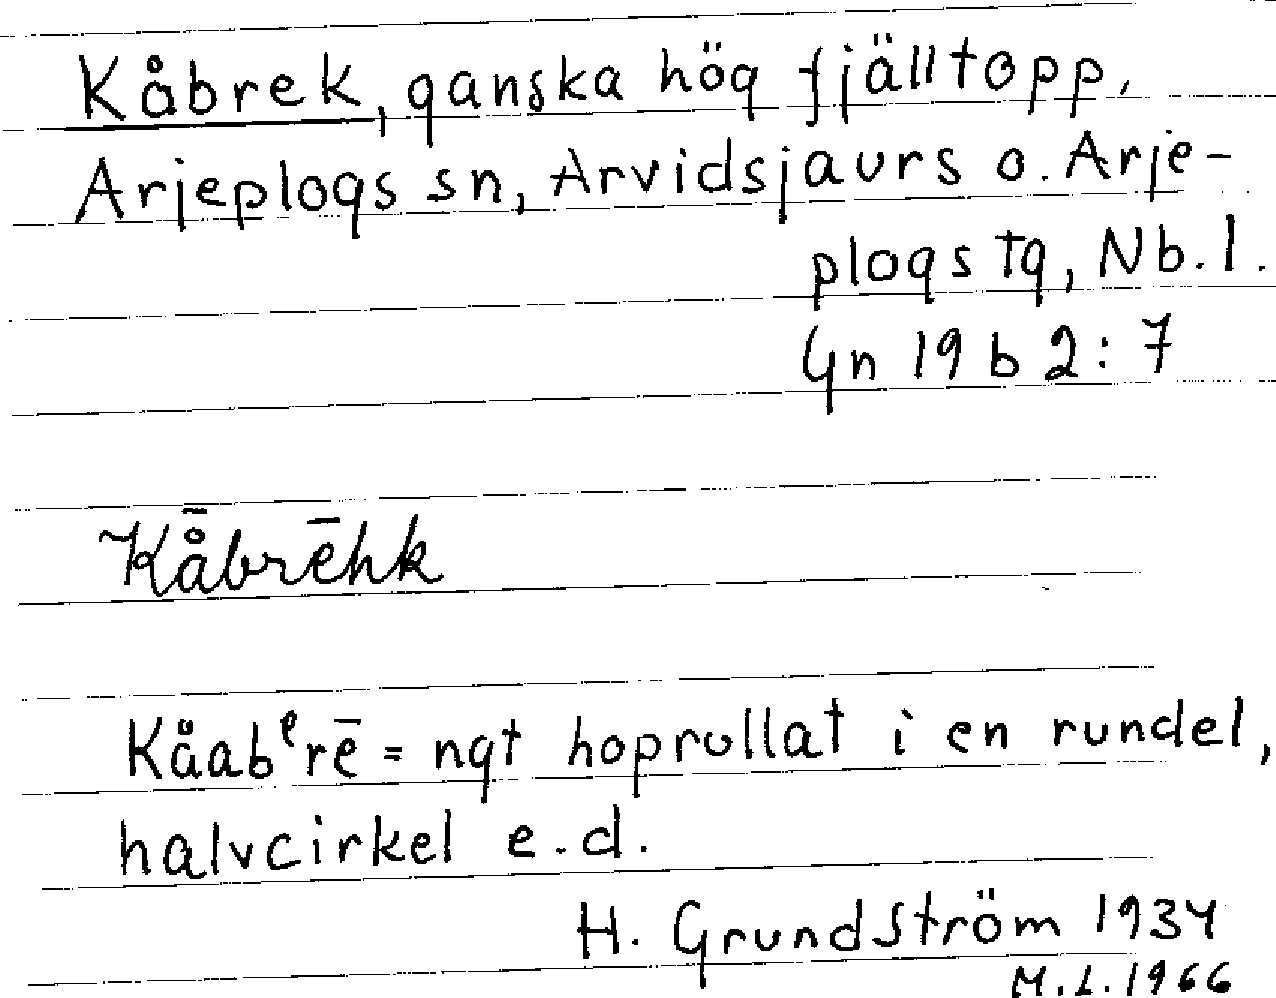 Kåbrek, ganska hög fjälltopp,
Arjeplogs sn, Arvidsjaurs o. Arje-
plogs tg, Nb. l.
Gn 19 b 2:7
Kå̄brēhk
Kåabᵉrē = ngt hoprullat i en rundel,
halvcirkel e.d.
H. Grundström 1934
M.L. 1966